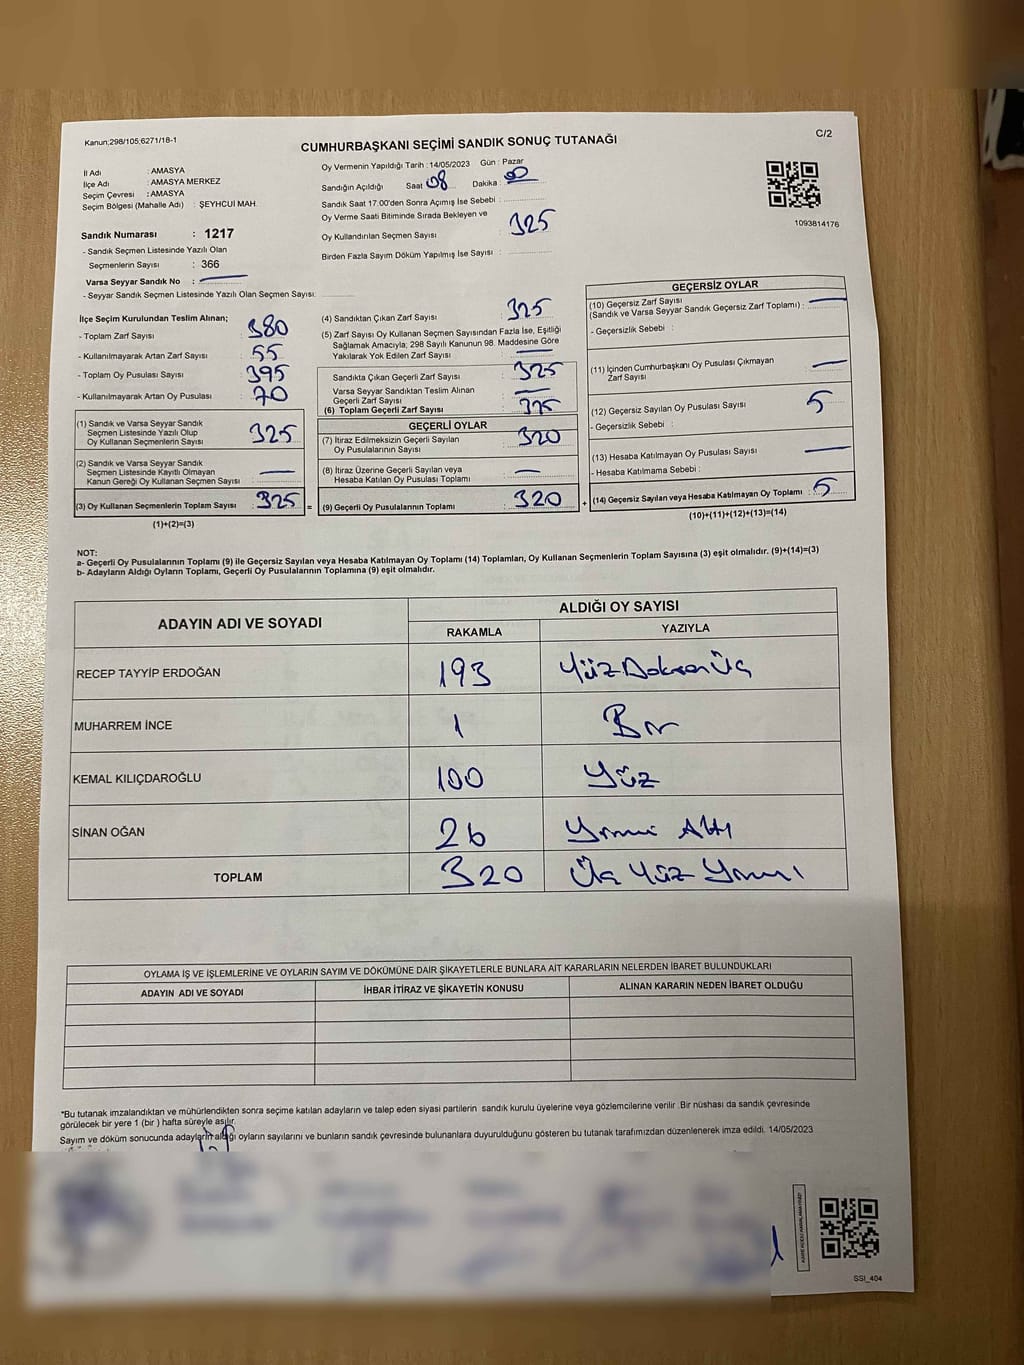 Kanun;298/105;6271/18-1
C/2
CUMHURBAŞKANI SEÇİMİ SANDIK SONUÇ TUTANAĞI
İl Adı : AMASYA
İlçe Adı : AMASYA MERKEZ
Seçim Çevresi : AMASYA
Seçim Bölgesi (Mahalle Adı) : ŞEYHCUİ MAH.
Oy Vermenin Yapıldığı Tarih : 14/05/2023 Gün : Pazar
Sandığın Açıldığı Saat 08 Dakika : 00
Sandık Saat 17:00'den Sonra Açımış İse Sebebi :
Oy Verme Saati Bitiminde Sırada Bekleyen ve
Oy Kullandırılan Seçmen Sayısı : 325
Birden Fazla Sayım Döküm Yapılmış İse Sayısı :
1093814176
Sandık Numarası : 1217
- Sandık Seçmen Listesinde Yazılı Olan
Seçmenlerin Sayısı : 366
Varsa Seyyar Sandık No :
- Seyyar Sandık Seçmen Listesinde Yazılı Olan Seçmen Sayısı:
İlçe Seçim Kurulundan Teslim Alınan;
- Toplam Zarf Sayısı : 380
- Kullanılmayarak Artan Zarf Sayısı : 55
- Toplam Oy Pusulası Sayısı : 395
- Kullanılmayarak Artan Oy Pusulası : 70
(1) Sandık ve Varsa Seyyar Sandık
Seçmen Listesinde Yazılı Olup
Oy Kullanan Seçmenlerin Sayısı : 325
(2) Sandık ve Varsa Seyyar Sandık
Seçmen Listesinde Kayıtlı Olmayan
Kanun Gereği Oy Kullanan Seçmen Sayısı :
(3) Oy Kullanan Seçmenlerin Toplam Sayısı : 325
(1)+(2)=(3)
=
(4) Sandıktan Çıkan Zarf Sayısı : 325
(5) Zarf Sayısı Oy Kullanan Seçmen Sayısından Fazla İse, Eşitliği
Sağlamak Amacıyla; 298 Sayılı Kanunun 98. Maddesine Göre
Yakılarak Yok Edilen Zarf Sayısı :
Sandıkta Çıkan Geçerli Zarf Sayısı : 325
Varsa Seyyar Sandıktan Teslim Alınan
Geçerli Zarf Sayısı :
(6) Toplam Geçerli Zarf Sayısı : 325
GEÇERLİ OYLAR
(7) İtiraz Edilmeksizin Geçerli Sayılan
Oy Pusulalarının Sayısı : 320
(8) İtiraz Üzerine Geçerli Sayılan veya
Hesaba Katılan Oy Pusulası Toplamı :
(9) Geçerli Oy Pusulalarının Toplamı : 320
+
GEÇERSİZ OYLAR
(10) Geçersiz Zarf Sayısı
(Sandık ve Varsa Seyyar Sandık Geçersiz Zarf Toplamı) :
- Geçersizlik Sebebi :
(11) İçinden Cumhurbaşkanı Oy Pusulası Çıkmayan
Zarf Sayısı :
(12) Geçersiz Sayılan Oy Pusulası Sayısı : 5
- Geçersizlik Sebebi :
(13) Hesaba Katılmayan Oy Pusulası Sayısı :
- Hesaba Katılmama Sebebi :
(14) Geçersiz Sayılan veya Hesaba Katılmayan Oy Toplamı : 5
(10)+(11)+(12)+(13)=(14)
NOT:
a- Geçerli Oy Pusulalarının Toplamı (9) ile Geçersiz Sayılan veya Hesaba Katılmayan Oy Toplamı (14) Toplamları, Oy Kullanan Seçmenlerin Toplam Sayısına (3) eşit olmalıdır. (9)+(14)=(3)
b- Adayların Aldığı Oyların Toplamı, Geçerli Oy Pusulalarının Toplamına (9) eşit olmalıdır.
ADAYIN ADI VE SOYADI
ALDIĞI OY SAYISI
RAKAMLA YAZIYLA
RECEP TAYYİP ERDOĞAN 193 Yüz Doksan Üç
MUHARREM İNCE 1 Bir
KEMAL KILIÇDAROĞLU 100 Yüz
SİNAN OĞAN 26 Yirmi Altı
TOPLAM 320 Üç Yüz Yirmi
OYLAMA İŞ VE İŞLEMLERİNE VE OYLARIN SAYIM VE DÖKÜMÜNE DAİR ŞİKAYETLERLE BUNLARA AİT KARARLARIN NELERDEN İBARET BULUNDUKLARI
ADAYIN ADI VE SOYADI İHBAR İTİRAZ VE ŞİKAYETİN KONUSU ALINAN KARARIN NEDEN İBARET OLDUĞU
*Bu tutanak imzalandıktan ve mühürlendikten sonra seçime katılan adayların ve talep eden siyasi partilerin sandık kurulu üyelerine veya gözlemcilerine verilir .Bir nüshası da sandık çevresinde
görülecek bir yere 1 (bir ) hafta süreyle asılır.
Sayım ve döküm sonucunda adayların aldığı oyların sayılarını ve bunların sandık çevresinde bulunanlara duyurulduğunu gösteren bu tutanak tarafımızdan düzenlenerek imza edildi. 14/05/2023
SSI_404